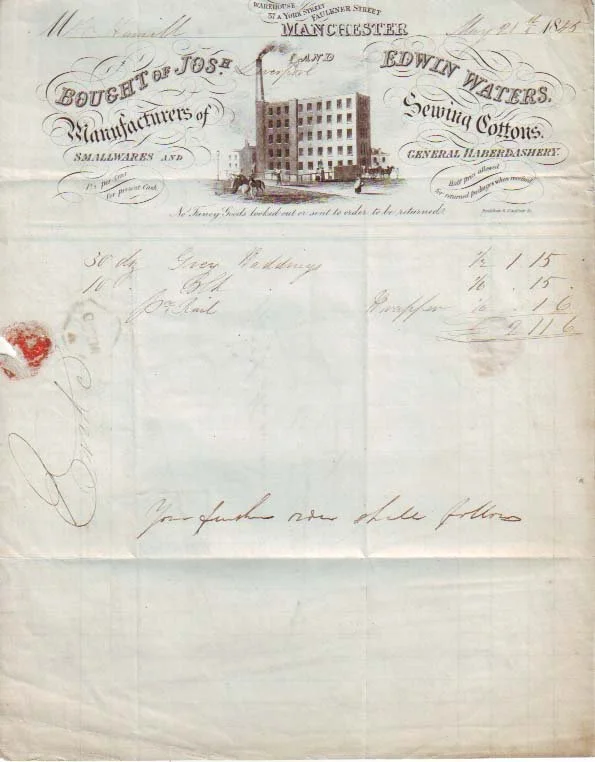 WAREHOUSE
37 & YORK STREET
FAULKNER STREET
MANCHESTER
May 21st 1845
BOUGHT OF JOSH. AND EDWIN WATERS.
Liverpool
Manufacturers of Sewing Cottons.
SMALLWARES AND GENERAL HABERDASHERY.
for prompt Cash
Half price allowed
for returned packages when received
No Fancy Goods looked out or sent to order to be returned.
30 Grey Waddings 1 . 15
10 . Blk . 15
pr Rail Wrapper 1 6
£ 2 11 6
Your further order shall follow